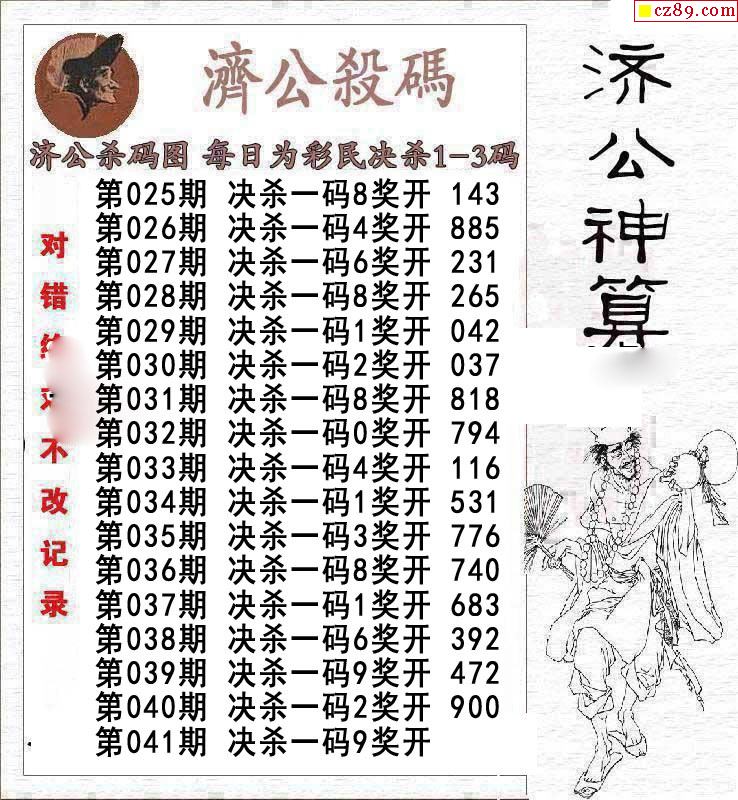 cz89.com
濟公殺碼
济公杀码图 每日为彩民决杀1-3码
第025期 决杀一码8奖开 143
第026期 决杀一码4奖开 885
第027期 决杀一码6奖开 231
第028期 决杀一码8奖开 265
第029期 决杀一码1奖开 042
第030期 决杀一码2奖开 037
第031期 决杀一码8奖开 818
第032期 决杀一码0奖开 794
第033期 决杀一码4奖开 116
第034期 决杀一码1奖开 531
第035期 决杀一码3奖开 776
第036期 决杀一码8奖开 740
第037期 决杀一码1奖开 683
第038期 决杀一码6奖开 392
第039期 决杀一码9奖开 472
第040期 决杀一码2奖开 900
第041期 决杀一码9奖开
对错不改记录
济公神算